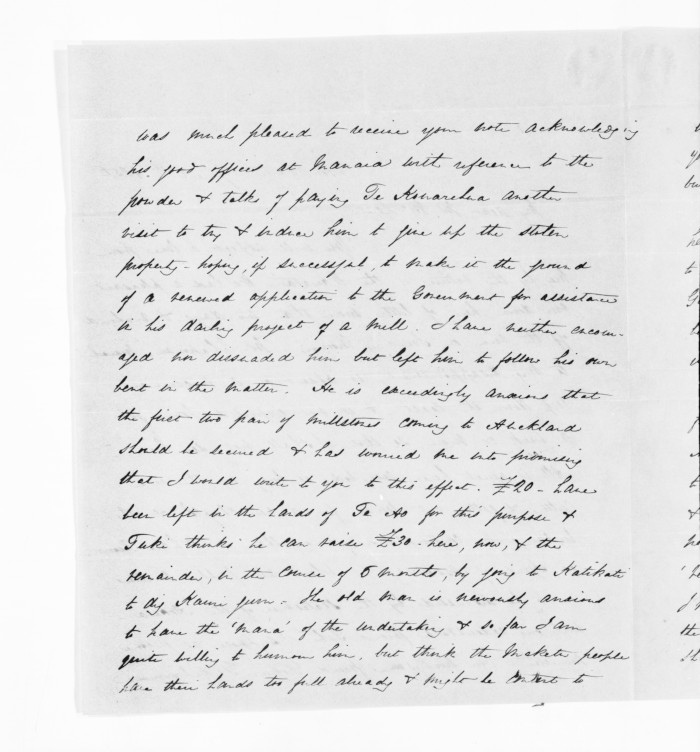 was much pleased to receive your note acknowledging
his good offices at Manaia with reference to the
powder & talks of paying Te another
visit to try & induce him to give up the stolen
property - hoping, if successful, to make it the ground
of a renewed application to the Government for assistance
in his darling project of a mill. I have neither encour-
aged nor dissuaded him but left him to follow his own
bent in the matter. He is exceedingly anxious that
the first two pair of millstones coming to Auckland
should be secured & has worried me into promising
that I would write to you to this effect. £20 - have
been left in the hands of Te Ao for this purpose &
Tuki thinks he can raise £30 - here, now, & the
remainder, in the course of 6 months, by going to Katikati
to dig Kauri gum - The old man is nervously anxious
to have the 'mana' of the undertaking & so far I am
quite willing to humour him, but think the people
have their hands too full already & might be content to